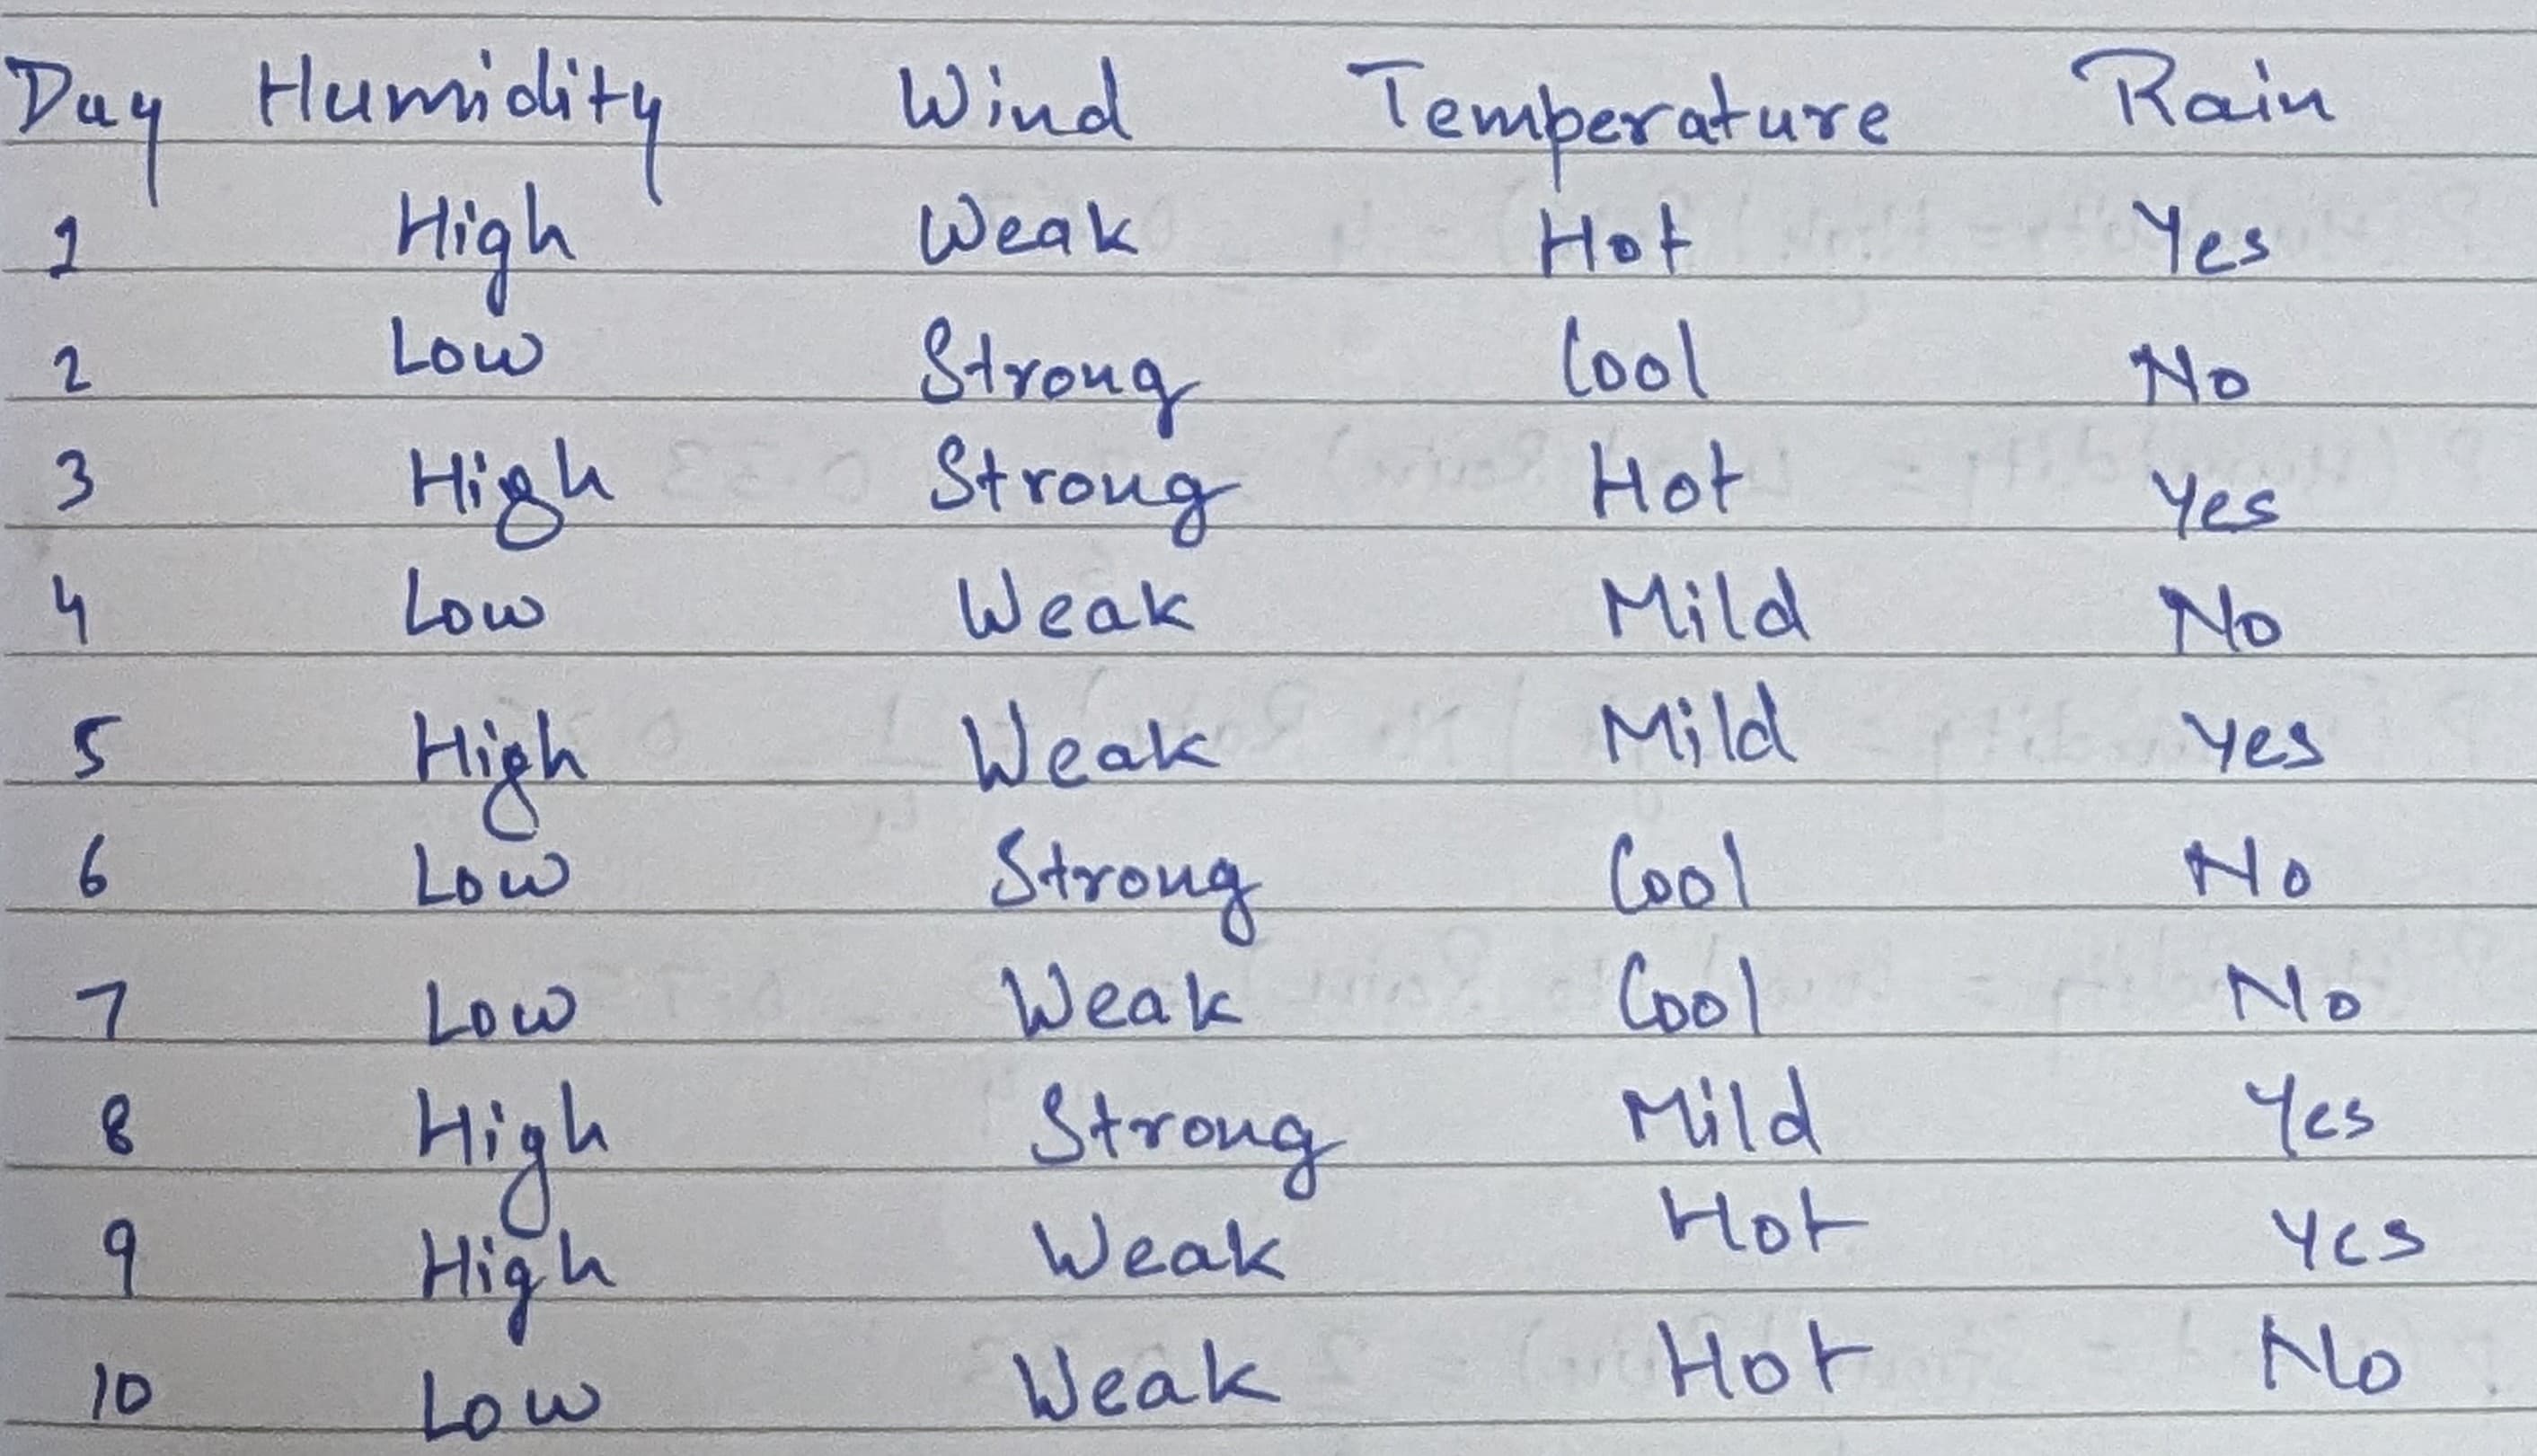 Day Humidity Wind Temperature Rain
1 High Weak Hot Yes
2 Low Strong Cool No
3 High Strong Hot Yes
4 Low Weak Mild No
5 High Weak Mild Yes
6 Low Strong Cool No
7 Low Weak Cool No
8 High Strong Mild Yes
9 High Weak Hot Yes
10 Low Weak Hot No